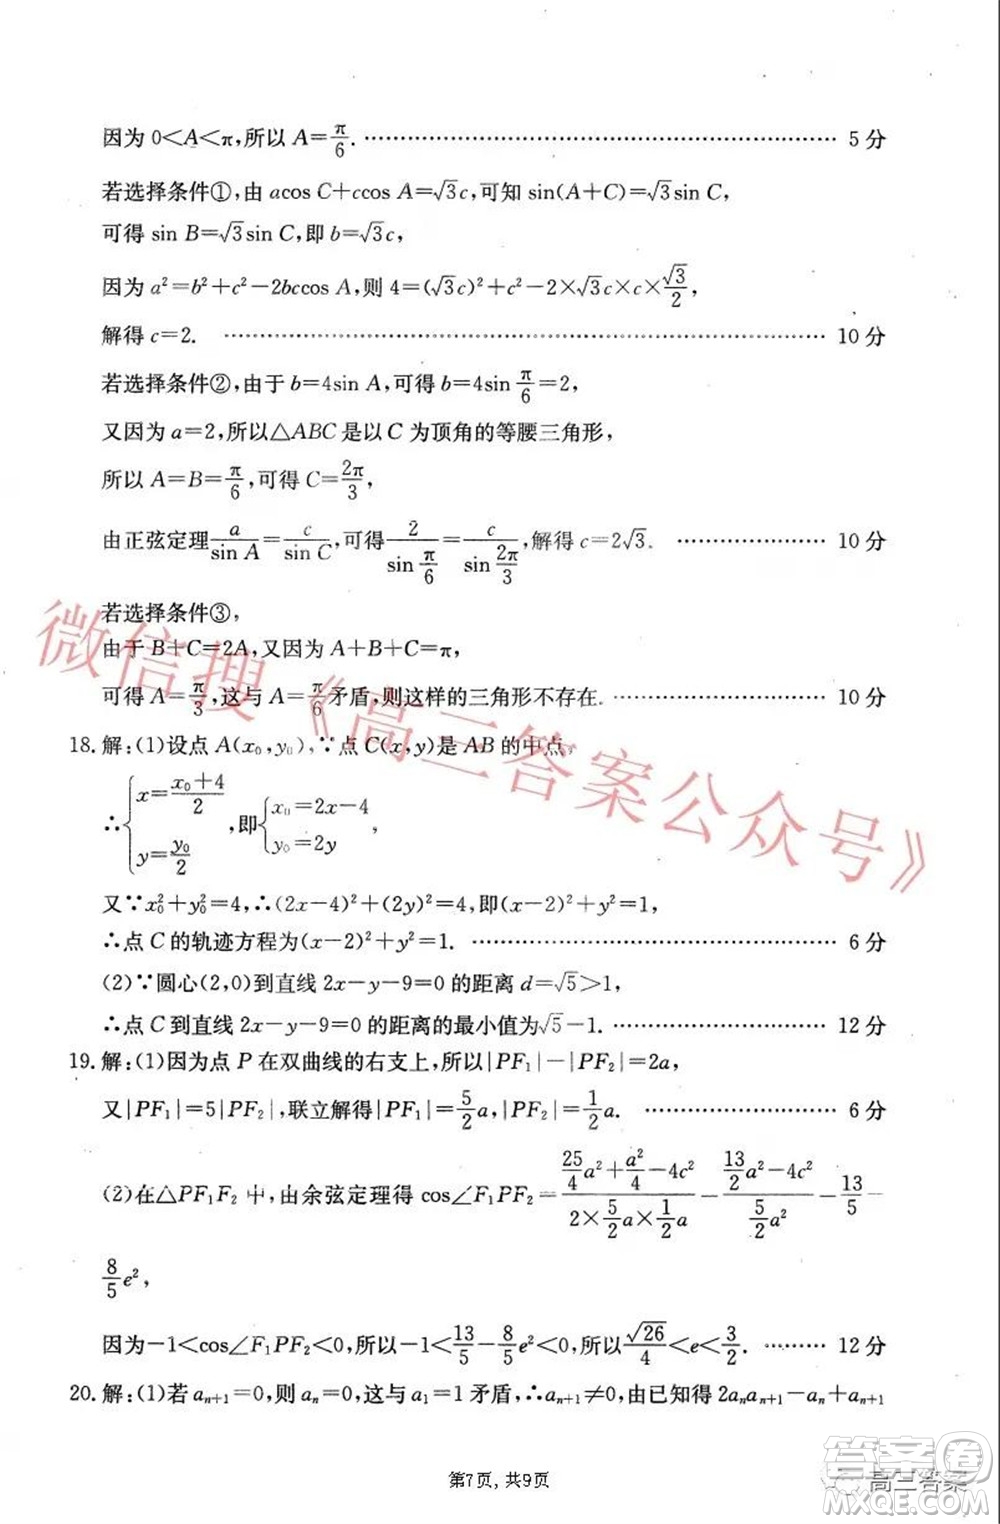 因为 0<A<π,所以 A=π/6. …… 5 分
若选择条件①,由 acos C+ccos A=√3c,可知 sin(A+C)=√3sin C,
可得 sin B=√3sin C,即 b=√3c,
因为 a²=b²+c²-2bccos A,则 4=(√3c)²+c²-2×√3c×c×√3/2,
解得 c=2. …… 10 分
若选择条件②,由于 b=4sin A,可得 b=4sin π/6=2,
又因为 a=2,所以△ABC 是以 C 为顶角的等腰三角形,
所以 A=B=π/6,可得 C=2π/3,
由正弦定理 a/sin A=c/sin C,可得 2/sin π/6=c/sin 2π/3,解得 c=2√3. …… 10 分
若选择条件③,
由于 B+C=2A,又因为 A+B+C=π,
可得 A=π/3,这与 A=π/6矛盾,则这样的三角形不存在. …… 10 分
18.解:(1)设点 A(x₀,y₀),∵点 C(x,y)是 AB 的中点,
∴{x=(x₀+4)/2, y=y₀/2,即{x₀=2x-4, y₀=2y,
又∵x₀²+y₀²=4,∴(2x-4)²+(2y)²=4,即(x-2)²+y²=1,
∴点 C 的轨迹方程为(x-2)²+y²=1. …… 6 分
(2)∵圆心(2,0)到直线 2x-y-9=0 的距离 d=√5>1,
∴点 C 到直线 2x-y-9=0 的距离的最小值为√5-1. …… 12 分
19.解:(1)因为点 P 在双曲线的右支上,所以|PF₁|-|PF₂|=2a,
又|PF₁|=5|PF₂|,联立解得|PF₁|=5/2a,|PF₂|=1/2a. …… 6 分
(2)在△PF₁F₂ 中,由余弦定理得 cos∠F₁PF₂=(25/4a²+a²/4-4c²)/(2×5/2a×1/2a)=(13/2a²-4c²)/(5/2a²)=13/5-
8/5e²,
因为-1<cos∠F₁PF₂<0,所以-1<13/5-8/5e²<0,所以√26/4<e<3/2. …… 12 分
20.解:(1)若 aₙ₊₁=0,则 aₙ=0,这与 a₁=1 矛盾,∴aₙ₊₁≠0,由已知得 2aₙaₙ₊₁-aₙ+aₙ₊₁
第7页,共9页
微信搜《高三答案公众号》
高三答案
答案圈
MXQE.COM